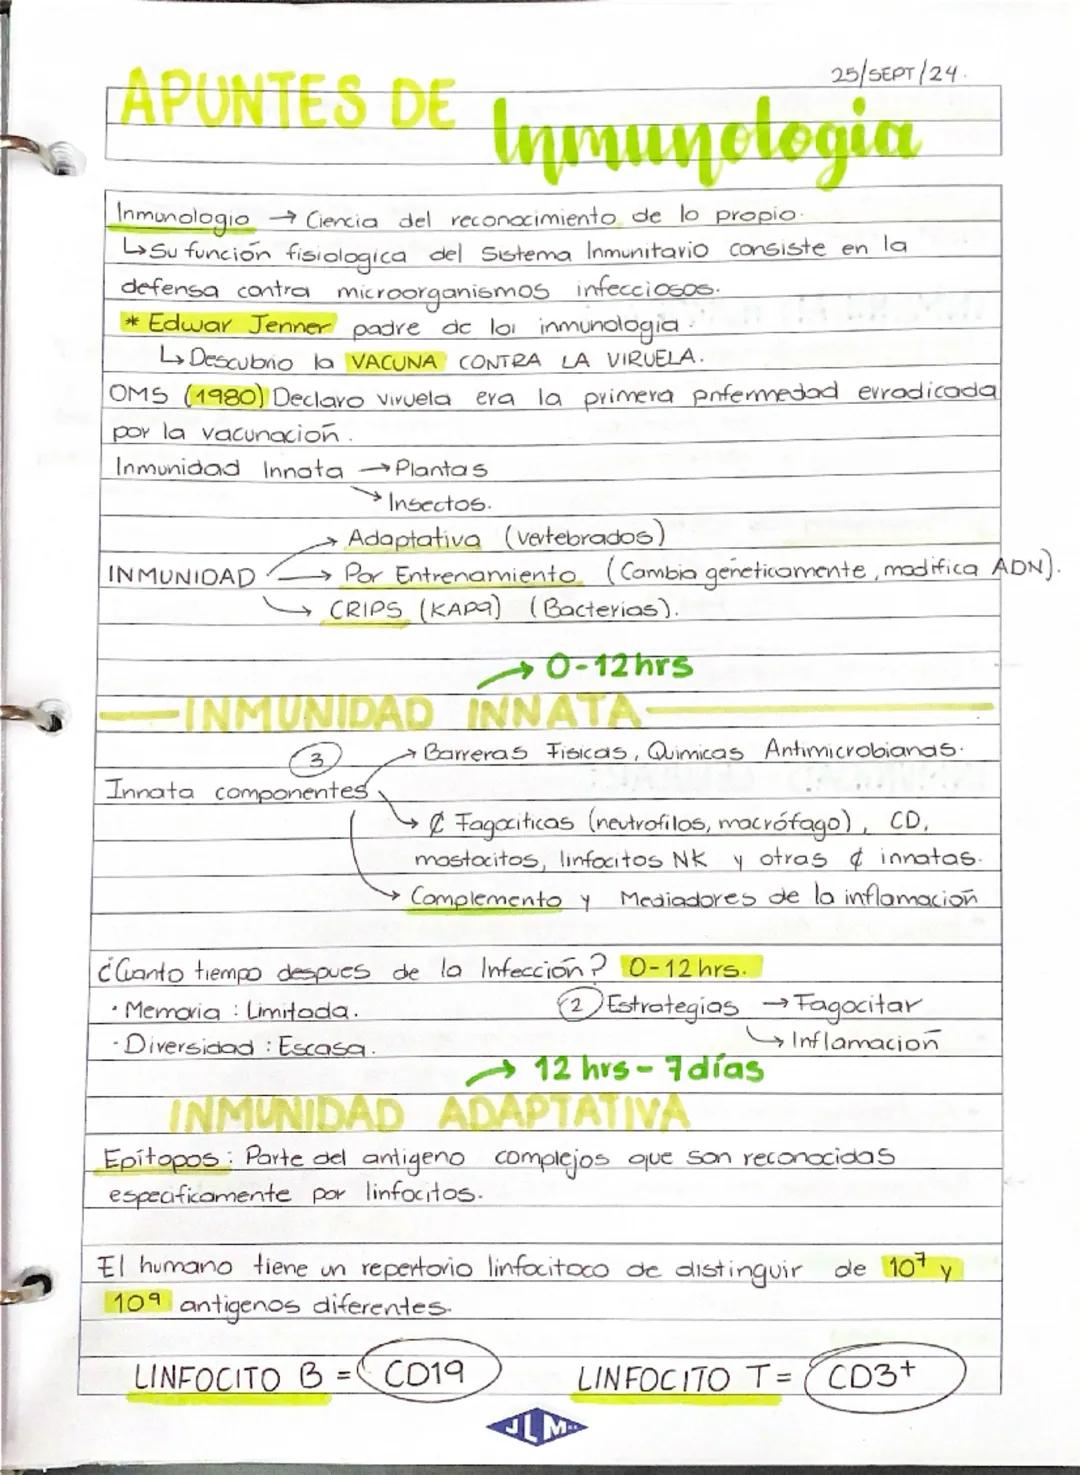 25/SEPT/24.
APUNTES DE Inmunologia
Inmunologia → Ciencia del reconocimiento de lo propio.
↳ Su función fisiologica del Sistema Inmunitario consiste en la
defensa contra microorganismos infecciosos.
* Edwar Jenner padre de la inmunologia.
↳ Descubrio la VACUNA CONTRA LA VIRUELA.
OMS (1980) Declaro viruela era la primera enfermedad erradicada
por la vacunación.
Inmunidad Innata → Plantas
→ Insectos.
→ Adaptativa (vertebrados)
INMUNIDAD → Por Entrenamiento (Cambia genéticamente, modifica ADN).
→ CRIPS (KAPA) (Bacterias).
→ 0-12hrs
INMUNIDAD INNATA
③ → Barreras Fisicas, Quimicas Antimicrobianas.
Innata componentes
→ ₵ Fagociticas (neutrofilos, macrófago), CD,
mastocitos, linfocitos NK y otras ¢ innatas.
→ Complemento y Mediadores de la inflamación
¿Cuanto tiempo despues de la Infección? 0-12hrs.
· Memoria : Limitada. ② Estrategias → Fagocitar
· Diversidad : Escasa. ↳ Inflamación
→ 12 hrs - 7días
INMUNIDAD ADAPTATIVA
Epítopos : Parte del antigeno complejos que son reconocidas
especificamente por linfocitos.
El humano tiene un repertorio linfocitoco de distinguir de 10⁷ y
10⁹ antigenos diferentes.
LINFOCITO B = CD19 LINFOCITO T = CD3+
JLM